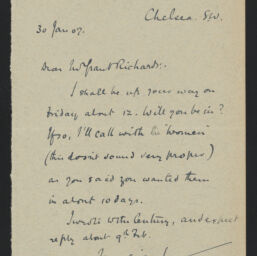 Chelsea. S.W.
30 Jan 07.
Dear Mr Grant Richards:
I shall be up your way on
Friday about 12. Will you be in?
If so, I'll call with the "Women"
(this doesn't sound very proper)
as you said you wanted them
in about 10 days.
I wrote to the Century, and expect
reply about 9th Feb.